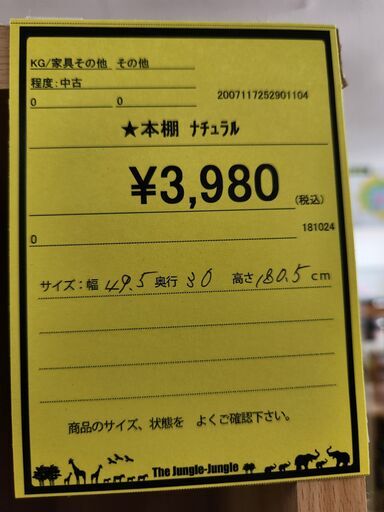 KG/家具その他 その他
程度:中古
0 0 2007117252901104
★本棚 ナチュラル
¥3,980 (税込)
0 181024
サイズ:幅 49.5 奥行 30 高さ 180.5 cm
商品のサイズ、状態を よくご確認下さい。
The Jungle-Jungle